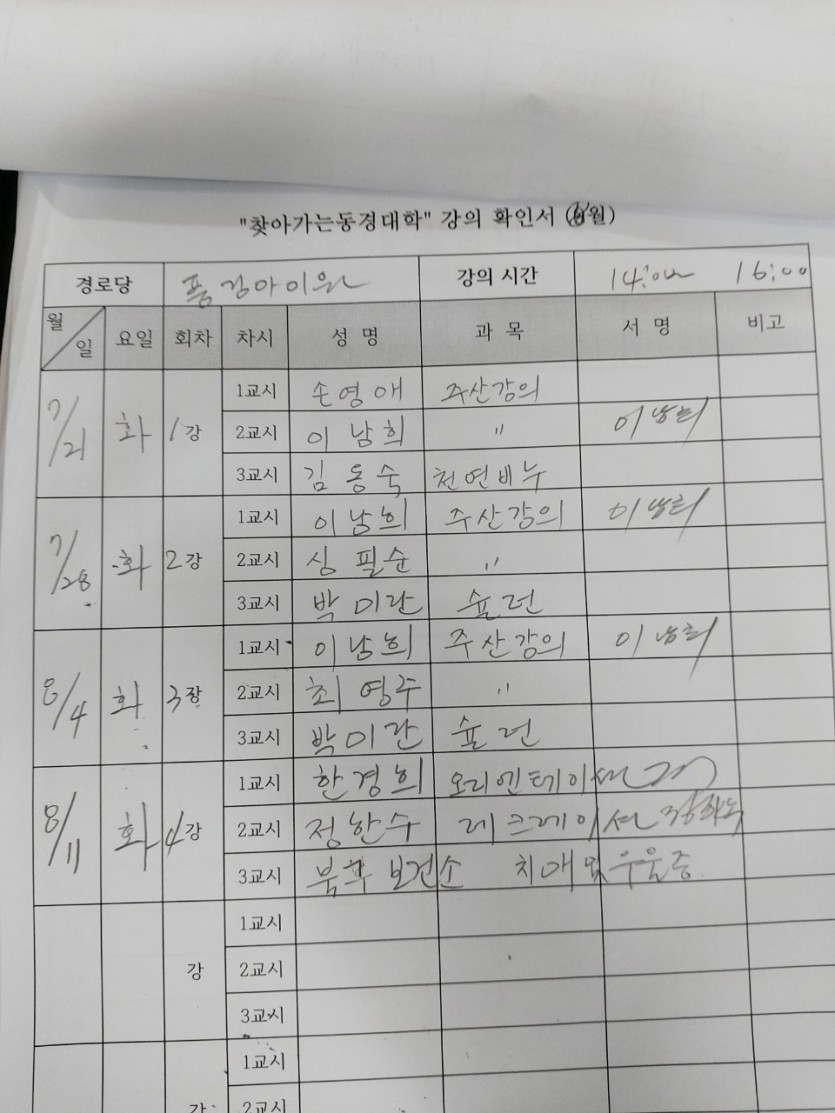 "찾아가는동경대학" 강의 확인서 (월)
경로당 풍경아이원 강의 시간 14:00 16:00
월/일 요일 회차 차시 성 명 과 목 서 명 비고
7/21 화 1강 1교시 손영애 주산강의
2교시 이남희 〃 이남희
3교시 김동숙 천연비누
7/28 화 2강 1교시 이남희 주산강의 이남희
2교시 심필순 〃
3교시 박미란 슐런
8/4 화 3강 1교시 이남희 주산강의 이남희
2교시 최영주 〃
3교시 박미란 슐런
8/11 화 4강 1교시 한경희 오리엔테이션
2교시 정한수 레크레이션
3교시 북구 보건소 치매 및 우울증
강 1교시
2교시
3교시
강 1교시
2교시